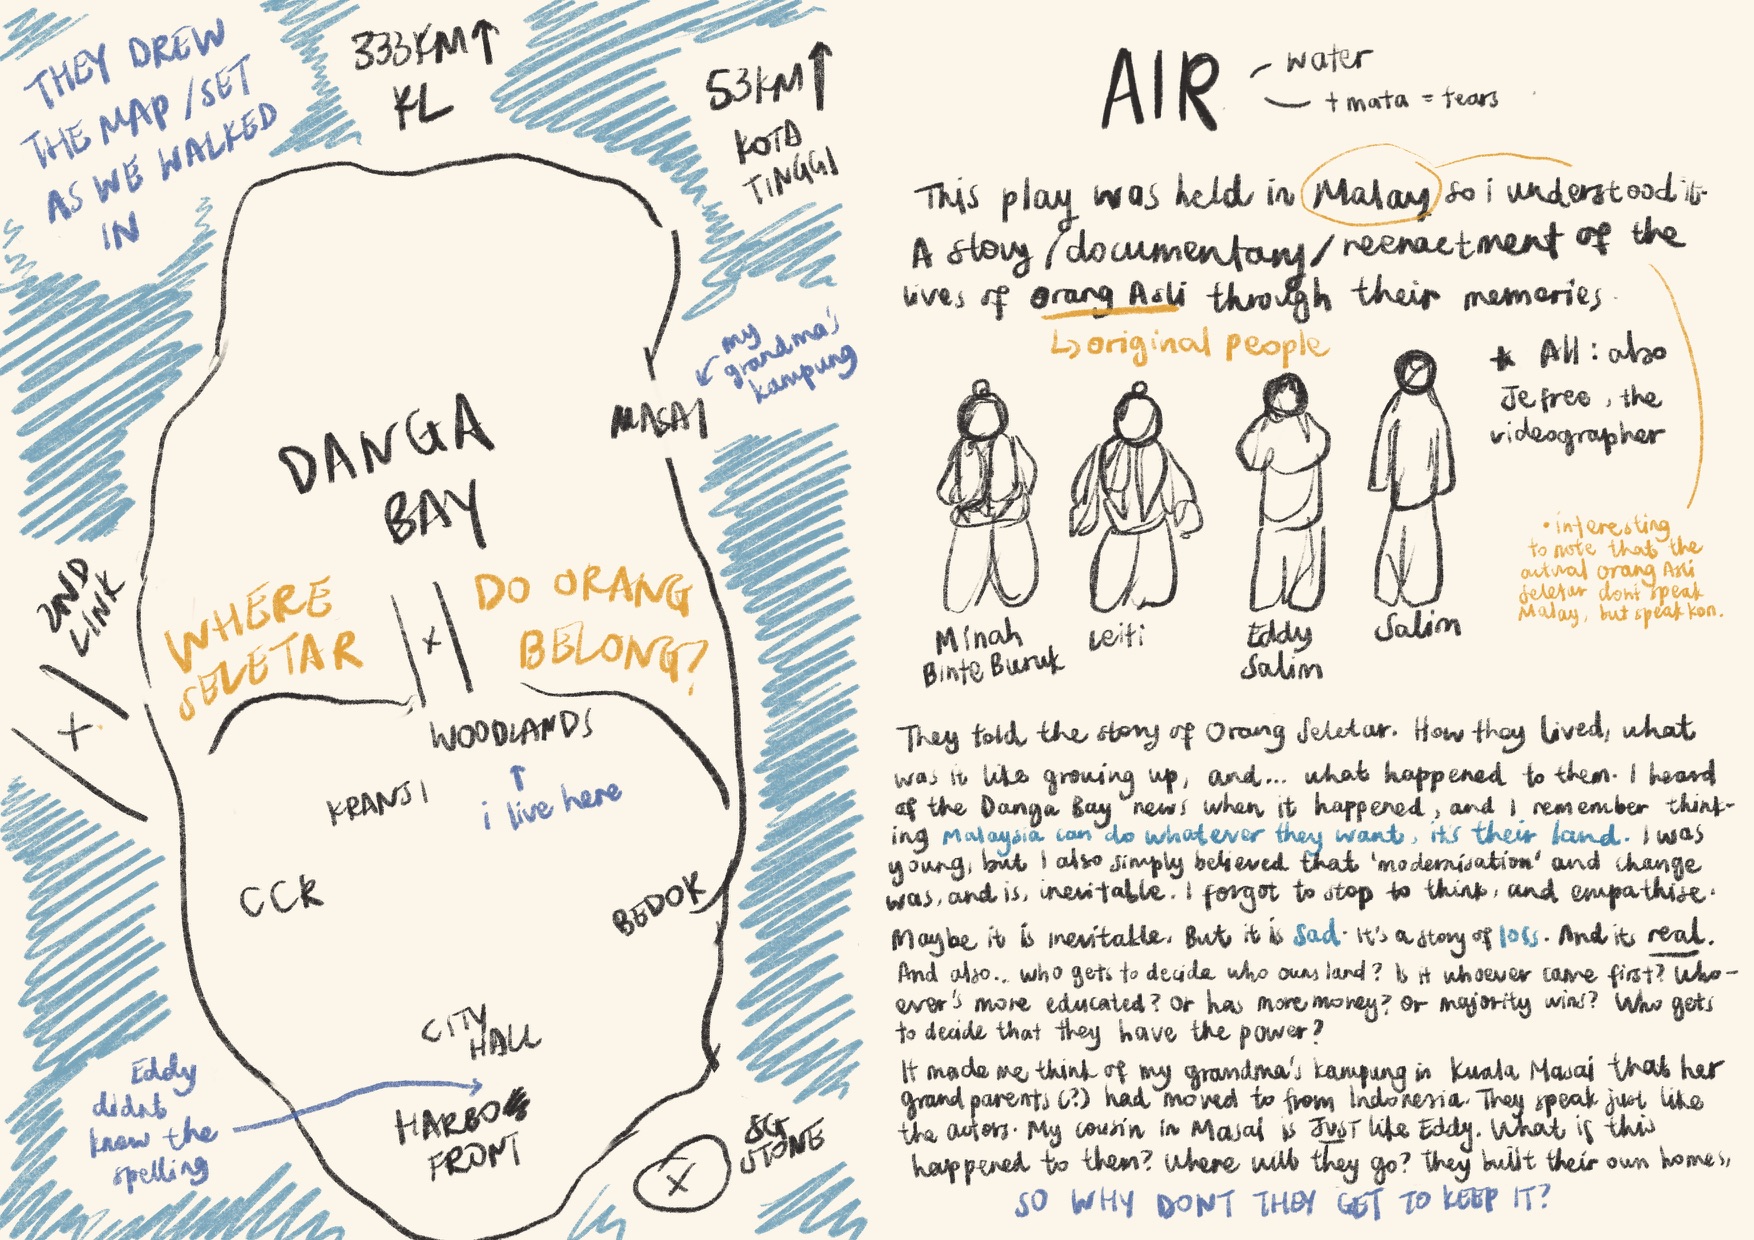 THEY DREW
THE MAP/SET
AS WE WALKED
IN
333KM↑
KL
53KM↑
KOTA
TINGGI
my
grandma's
kampung
MASAI
DANGA
BAY
2ND
LINK
X
WHERE
SELETAR
X
DO ORANG
BELONG?
WOODLANDS
↑
i live here
KRANJI
CCK
BEDOK
CITY
HALL
Eddy
didnt
know the
spelling
HARBO
FRONT
X
STONE
AIR
water
+ mata = tears
This play was held in Malay so i understood it.
A story/documentary/reenactment of the
lives of Orang Asli through their memories.
↳ original people
* All: also
Jefree, the
videographer
• interesting
to note that the
actual orang Asli
Seletar dont speak
Malay, but speak kon.
Minah
Binte Buruk
Leiti
Eddy
Salim
Salim
They told the story of Orang Seletar. How they lived, what
was it like growing up, and... what happened to them. I heard
of the Danga Bay news when it happened, and I remember think-
ing Malaysia can do whatever they want, it's their land. I was
young, but I also simply believed that 'modernisation' and change
was, and is, inevitable. I forgot to stop to think, and empathise.
Maybe it is inevitable. But it is sad. It's a story of loss. And its real.
And also.. who gets to decide who owns land? Is it whoever came first? Who-
ever's more educated? Or has more money? Or majority wins? Who gets
to decide that they have the power?
It made me think of my grandma's kampung in Kuala Masai that her
grandparents (?) had moved to from Indonesia. They speak just like
the actors. My cousin in Masai is JUST like Eddy. What if this
happened to them? Where will they go? They built their own homes,
SO WHY DONT THEY GET TO KEEP IT?